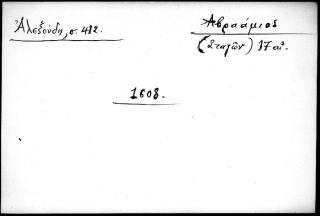 Ἀλεξούδη, σ. 412.
Ἀβραάμιος
(Σταγῶν) 17 αἰ.
1608.